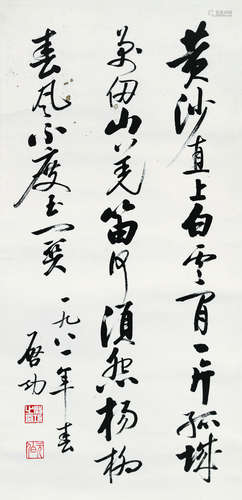 黄沙直上白云间一片孤城
万仞山羌笛何须怨杨柳
春风不度玉门关
一九八一年春
启功